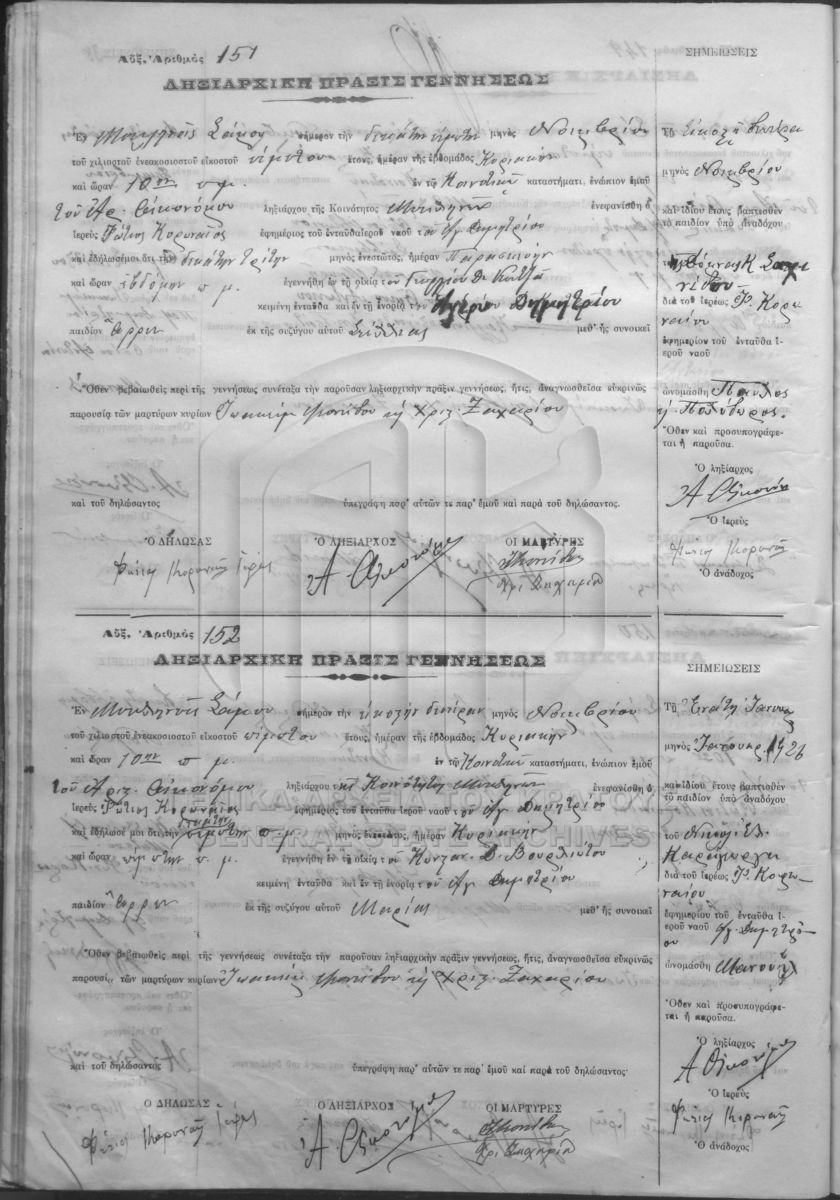 Αὔξ. Ἀριθμὸς 151
ΛΗΞΙΑΡΧΙΚΗ ΠΡΑΞΙΣ ΓΕΝΝΗΣΕΩΣ
Ἐν Σάμου σήμερον τὴν δεκάτην πέμπτην μηνὸς Νοεμβρίου
τοῦ χιλιοστοῦ ἐνεακοσιοστοῦ εἰκοστοῦ πέμπτου ἔτους, ἡμέραν τῆς ἑβδομάδος Κυριακὴν
καὶ ὥραν 10ην π.μ. ἐν τῷ Κοινοτικῷ καταστήματι, ἐνώπιον ἐμοῦ
τοῦ Ἀρ. Οἰκονόμου ληξιάρχου τῆς Κοινότητος ἐνεφανίσθη ὁ
ἱερεὺς Φώτιος Κορωναῖος ἐφημέριος τοῦ ἐνταῦθα ἱεροῦ ναοῦ τοῦ Ἁγ. Δημητρίου
καὶ ἐδήλωσέ μοι ὅτι τὴν δεκάτην τρίτην μηνὸς ἐνεστῶτος, ἡμέραν Παρασκευὴν
καὶ ὥραν ἑβδόμην π.μ. ἐγεννήθη ἐν τῇ οἰκίᾳ τοῦ Γεωργίου
κειμένῃ ἐνταῦθα καὶ ἐν τῇ ἐνορίᾳ τοῦ Ἁγίου Δημητρίου
παιδίον ἄρρεν ἐκ τῆς συζύγου αὐτοῦ μεθ' ἧς συνοικεῖ
Ὅθεν βεβαιωθεὶς περὶ τῆς γεννήσεως συνέταξα τὴν παροῦσαν ληξιαρχικὴν πρᾶξιν γεννήσεως, ἥτις, ἀναγνωσθεῖσα εὐκρινῶς
παρουσίᾳ τῶν μαρτύρων κυρίων Ἰωακεὶμ καὶ Χριστ. Ζαχαρίου
καὶ τοῦ δηλώσαντος. ὑπεγράφη παρ' αὐτῶν τε παρ' ἐμοῦ καὶ παρὰ τοῦ δηλώσαντος.
Ο ΔΗΛΩΣΑΣ Ο ΛΗΞΙΑΡΧΟΣ ΟΙ ΜΑΡΤΥΡΕΣ
Φώτιος Κορωναῖος ἱερεύς Α Οἰκονόμου
Χρι Ζαχαρία
ΣΗΜΕΙΩΣΕΙΣ
Τῇ εἰκοστῇ δευτέρᾳ
μηνὸς Νοεμβρίου
καὶ ἰδίου ἔτους βαπτισθὲν
τὸ παιδίον ὑπὸ ἀναδόχου
διὰ τοῦ ἱερέως Φ. Κορωναίου
ἐφημερίου τοῦ ἐνταῦθα ἱεροῦ ναοῦ
ὠνομάσθη Παῦλος
ἢ Πολύδωρος.
Ὅθεν καὶ προσυπογράφεται ἡ παροῦσα.
Ὁ ληξίαρχος
Α Οἰκονόμου
Ὁ Ἱερεὺς
Φώτιος Κορωναῖος
Ὁ ἀνάδοχος
Αὔξ. Ἀριθμὸς 152
ΛΗΞΙΑΡΧΙΚΗ ΠΡΑΞΙΣ ΓΕΝΝΗΣΕΩΣ
Ἐν Σάμου σήμερον τὴν εἰκοστὴν δευτέραν μηνὸς Νοεμβρίου
τοῦ χιλιοστοῦ ἐνεακοσιοστοῦ εἰκοστοῦ πέμπτου ἔτους, ἡμέραν τῆς ἑβδομάδος Κυριακὴν
καὶ ὥραν 10ην π.μ. ἐν τῷ Κοινοτικῷ καταστήματι, ἐνώπιον ἐμοῦ
τοῦ Ἀριστ. Οἰκονόμου ληξιάρχου τῆς Κοινότητος ἐνεφανίσθη ὁ
ἱερεὺς Φώτιος Κορωναῖος ἐφημέριος τοῦ ἐνταῦθα ἱεροῦ ναοῦ τοῦ Ἁγ. Δημητρίου
καὶ ἐδήλωσέ μοι ὅτι τὴν π.μ. μηνὸς ἐνεστῶτος, ἡμέραν Κυριακὴν
καὶ ὥραν πέμπτην π.μ. ἐγεννήθη ἐν τῇ οἰκίᾳ τοῦ Κωνσταν. Δ. Βουρλιώτου
κειμένῃ ἐνταῦθα καὶ ἐν τῇ ἐνορίᾳ τοῦ Ἁγ. Δημητρίου
παιδίον ἄρρεν ἐκ τῆς συζύγου αὐτοῦ Μαρίας μεθ' ἧς συνοικεῖ
Ὅθεν βεβαιωθεὶς περὶ τῆς γεννήσεως συνέταξα τὴν παροῦσαν ληξιαρχικὴν πρᾶξιν γεννήσεως, ἥτις, ἀναγνωσθεῖσα εὐκρινῶς
παρουσίᾳ τῶν μαρτύρων κυρίων Ἰωακεὶμ καὶ Χριστ. Ζαχαρίου
καὶ τοῦ δηλώσαντος ὑπεγράφη παρ' αὐτῶν τε παρ' ἐμοῦ καὶ παρὰ τοῦ δηλώσαντος.
Ο ΔΗΛΩΣΑΣ Ο ΛΗΞΙΑΡΧΟΣ ΟΙ ΜΑΡΤΥΡΕΣ
Φώτιος Κορωναῖος ἱερεύς Α Οἰκονόμου
Χρι Ζαχαρία
ΣΗΜΕΙΩΣΕΙΣ
Τῇ Ἐνάτῃ Ἰανουαρ.
μηνὸς Ἰανουαρ. 1926
καὶ ἰδίου ἔτους βαπτισθὲν
τὸ παιδίον ὑπὸ ἀναδόχου
τοῦ Νικολ. Ἐλ.
Καραγιώργη
διὰ τοῦ ἱερέως Φ. Κορωναίου
ἐφημερίου τοῦ ἐνταῦθα ἱεροῦ ναοῦ Ἁγ. Δημητρίου
ὠνομάσθη Μανουὴλ
Ὅθεν καὶ προσυπογράφεται ἡ παροῦσα.
Ὁ ληξίαρχος
Α Οἰκονόμου
Ὁ Ἱερεὺς
Φώτιος Κορωναῖος
Ὁ ἀνάδοχος
GENERAL STATE ARCHIVES